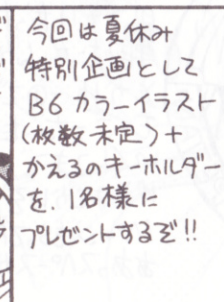 今回は夏休み
特別企画として
B6カラーイラスト
(枚数未定)+
かえるのキーホルダー
を、1名様に
プレゼントするぞ!!